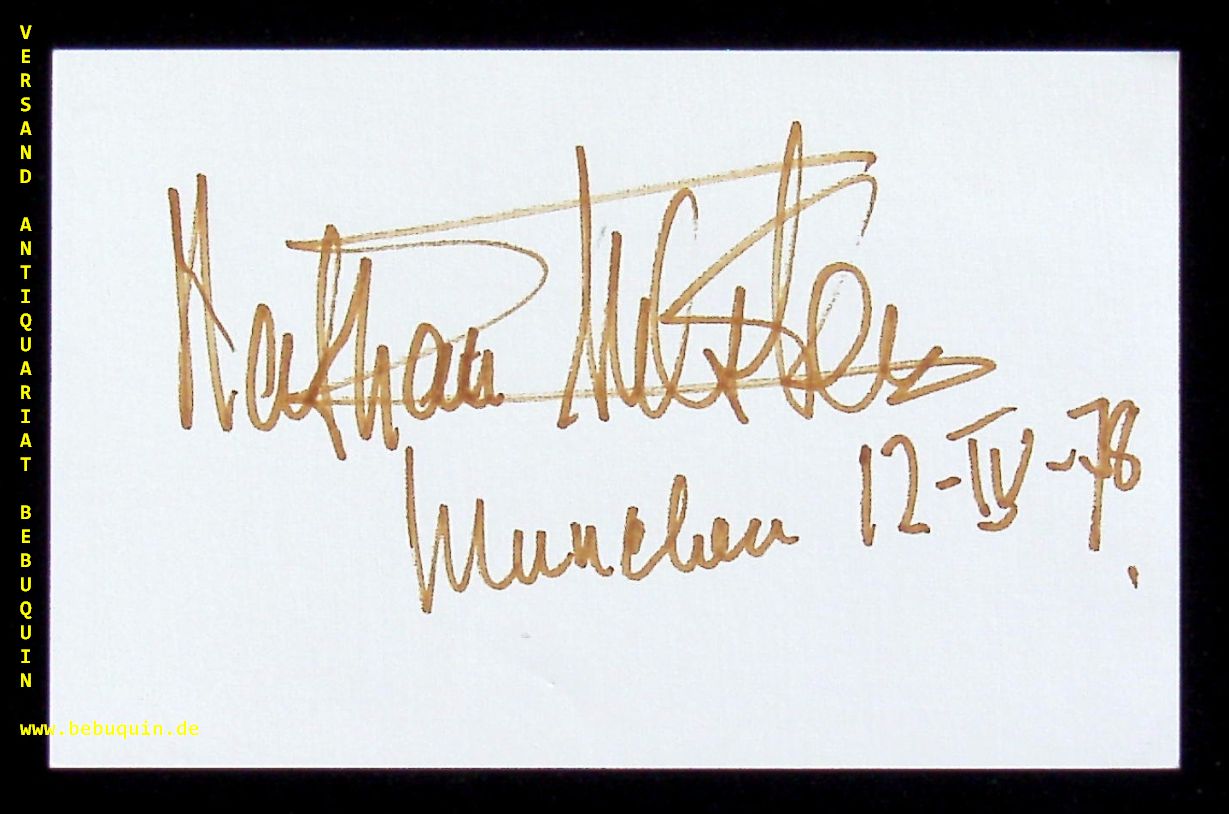 VERSAND ANTIQUARIAT BEBUQUIN
Nathan Milstein
Munchen 12-IV-78
www.bebuquin.de